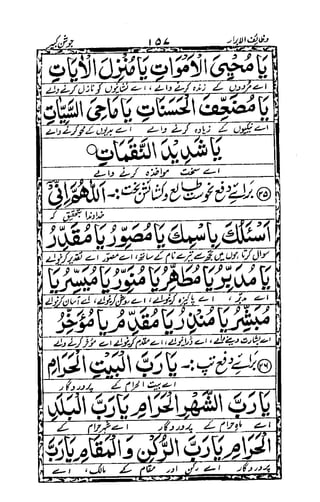 وظائف الابرار ۱۵۷ جوشن کبیر
يَا مُحْيِيَ الْأَمْوَاتِ يَا مُنْزِلَ الْآيَاتِ
اے مردوں کے زندہ کرنے والے اے نشانیوں کو نازل کرنے والے
يَا مُضَعِّفَ الْحَسَنَاتِ يَا مَاحِيَ السَّيِّئَاتِ
اے نیکیوں کے زیادہ کرنے والے اے بدیوں کے محو کرنے والے
يَا شَدِيدَ النَّقِمَاتِ
اے سخت مواخذہ کرنے والے
(۲۵) برائے دفع نحوست طالع و کشائش بخت :- اَللّٰهُمَّ اِنِّيْ
خداوندا بتحقیق کہ
اَسْئَلُكَ بِاسْمِكَ يَا مُصَوِّرُ يَا مُقَدِّرُ
سوال کرتا ہوں میں تجھ سے تیرے نام کے ساتھ اے مصور اے تقدیر کرنے والے
يَا مُدَبِّرُ يَا مُطَهِّرُ يَا مُنَوِّرُ يَا مُيَسِّرُ يَا
اے مدبر اے پاکیزہ کرنیوالے اے روشن کرنیوالے اے آسان کرنیوالے
مُبَشِّرُ يَا مُنْذِرُ يَا مُقَدِّمُ يَا مُؤَخِّرُ
اے بشارت دینے والے اے ڈرانیوالے اے مقدم کرنیوالے اے مؤخر کرنے والے
(۲۶) برائے دفع تپ :- يَا رَبَّ الْبَيْتِ الْحَرَامِ
اے بیت الحرام کے پروردگار
يَا رَبَّ الشَّهْرِ الْحَرَامِ يَا رَبَّ الْبَلَدِ
اے ماہ حرام کے پروردگار اے شہر حرام کے
الْحَرَامِ يَا رَبَّ الرُّكْنِ وَالْمَقَامِ يَا رَبَّ
پروردگار اے رکن اور مقام کے مالک اے